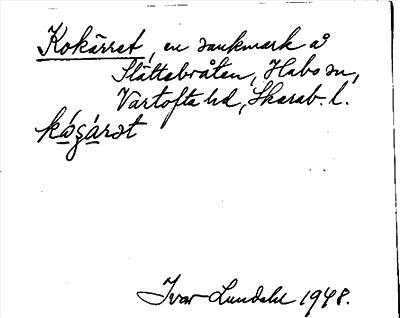 Kokärret, en sankmark å
Slättabråten, Habo sn,
Vartofta hd, Skarab. l.
Ivar Lundahl 1948.